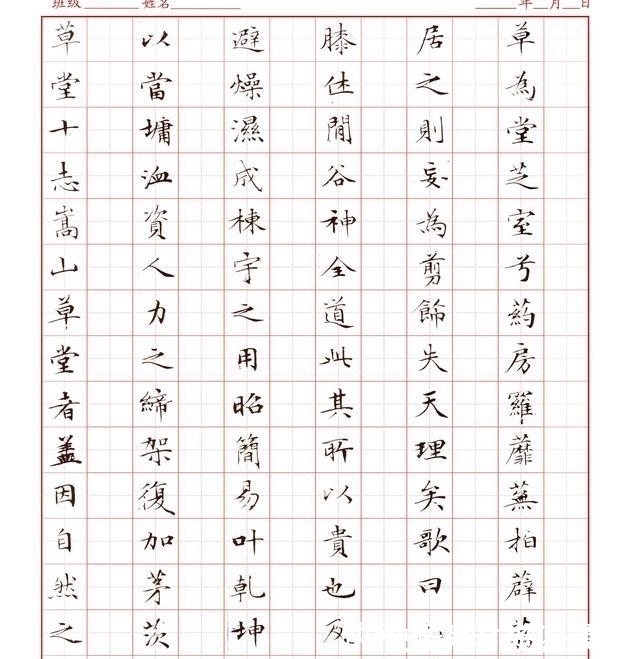 班级 姓名 年 月 日
草堂十志嵩山草堂者蓋因自然之
以當墉洫資人力之締架復加茅茨
避燥濕成棟宇之用昭簡易叶乾坤
膝休閒谷神全道此其所以貴也及
居之則妄為剪飾失天理矣歌曰
草為堂芝室兮葯房羅蘼蕪拍薜